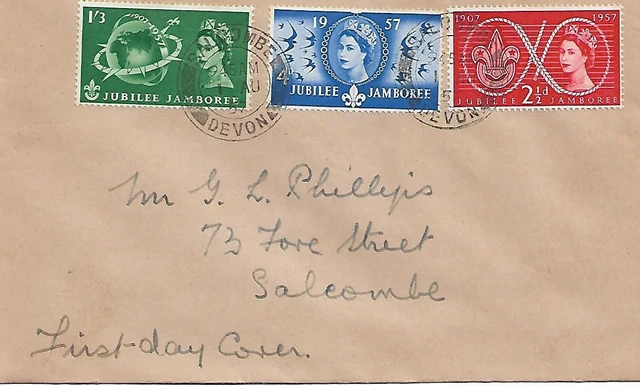 1'3
1907-1957
JUBILEE JAMBOREE
1957
JUBILEE JAMBOREE
1907 1957
JUBILEE JAMBOREE
2½d
SALCOMBE
AU
DEVON
DEVON
Mr G. L. Phillips
73 Fore Street
Salcombe
First-day Cover.